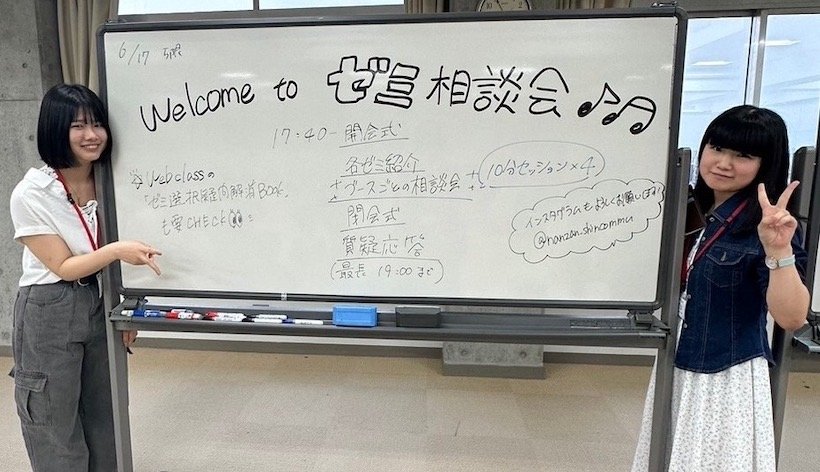 6/17 5限
Welcome to ゼミ相談会♪♫
17:40-開会式
各ゼミ紹介
+ブースごとの相談会 10分セッション×4
閉会式
質疑応答
(最長 19:00まで)
☆Webclassの
「ゼミ選択疑問解消BOOK」
も要CHECK👀
インスタグラムもよろしくお願いします!
@nanzan.shincommu